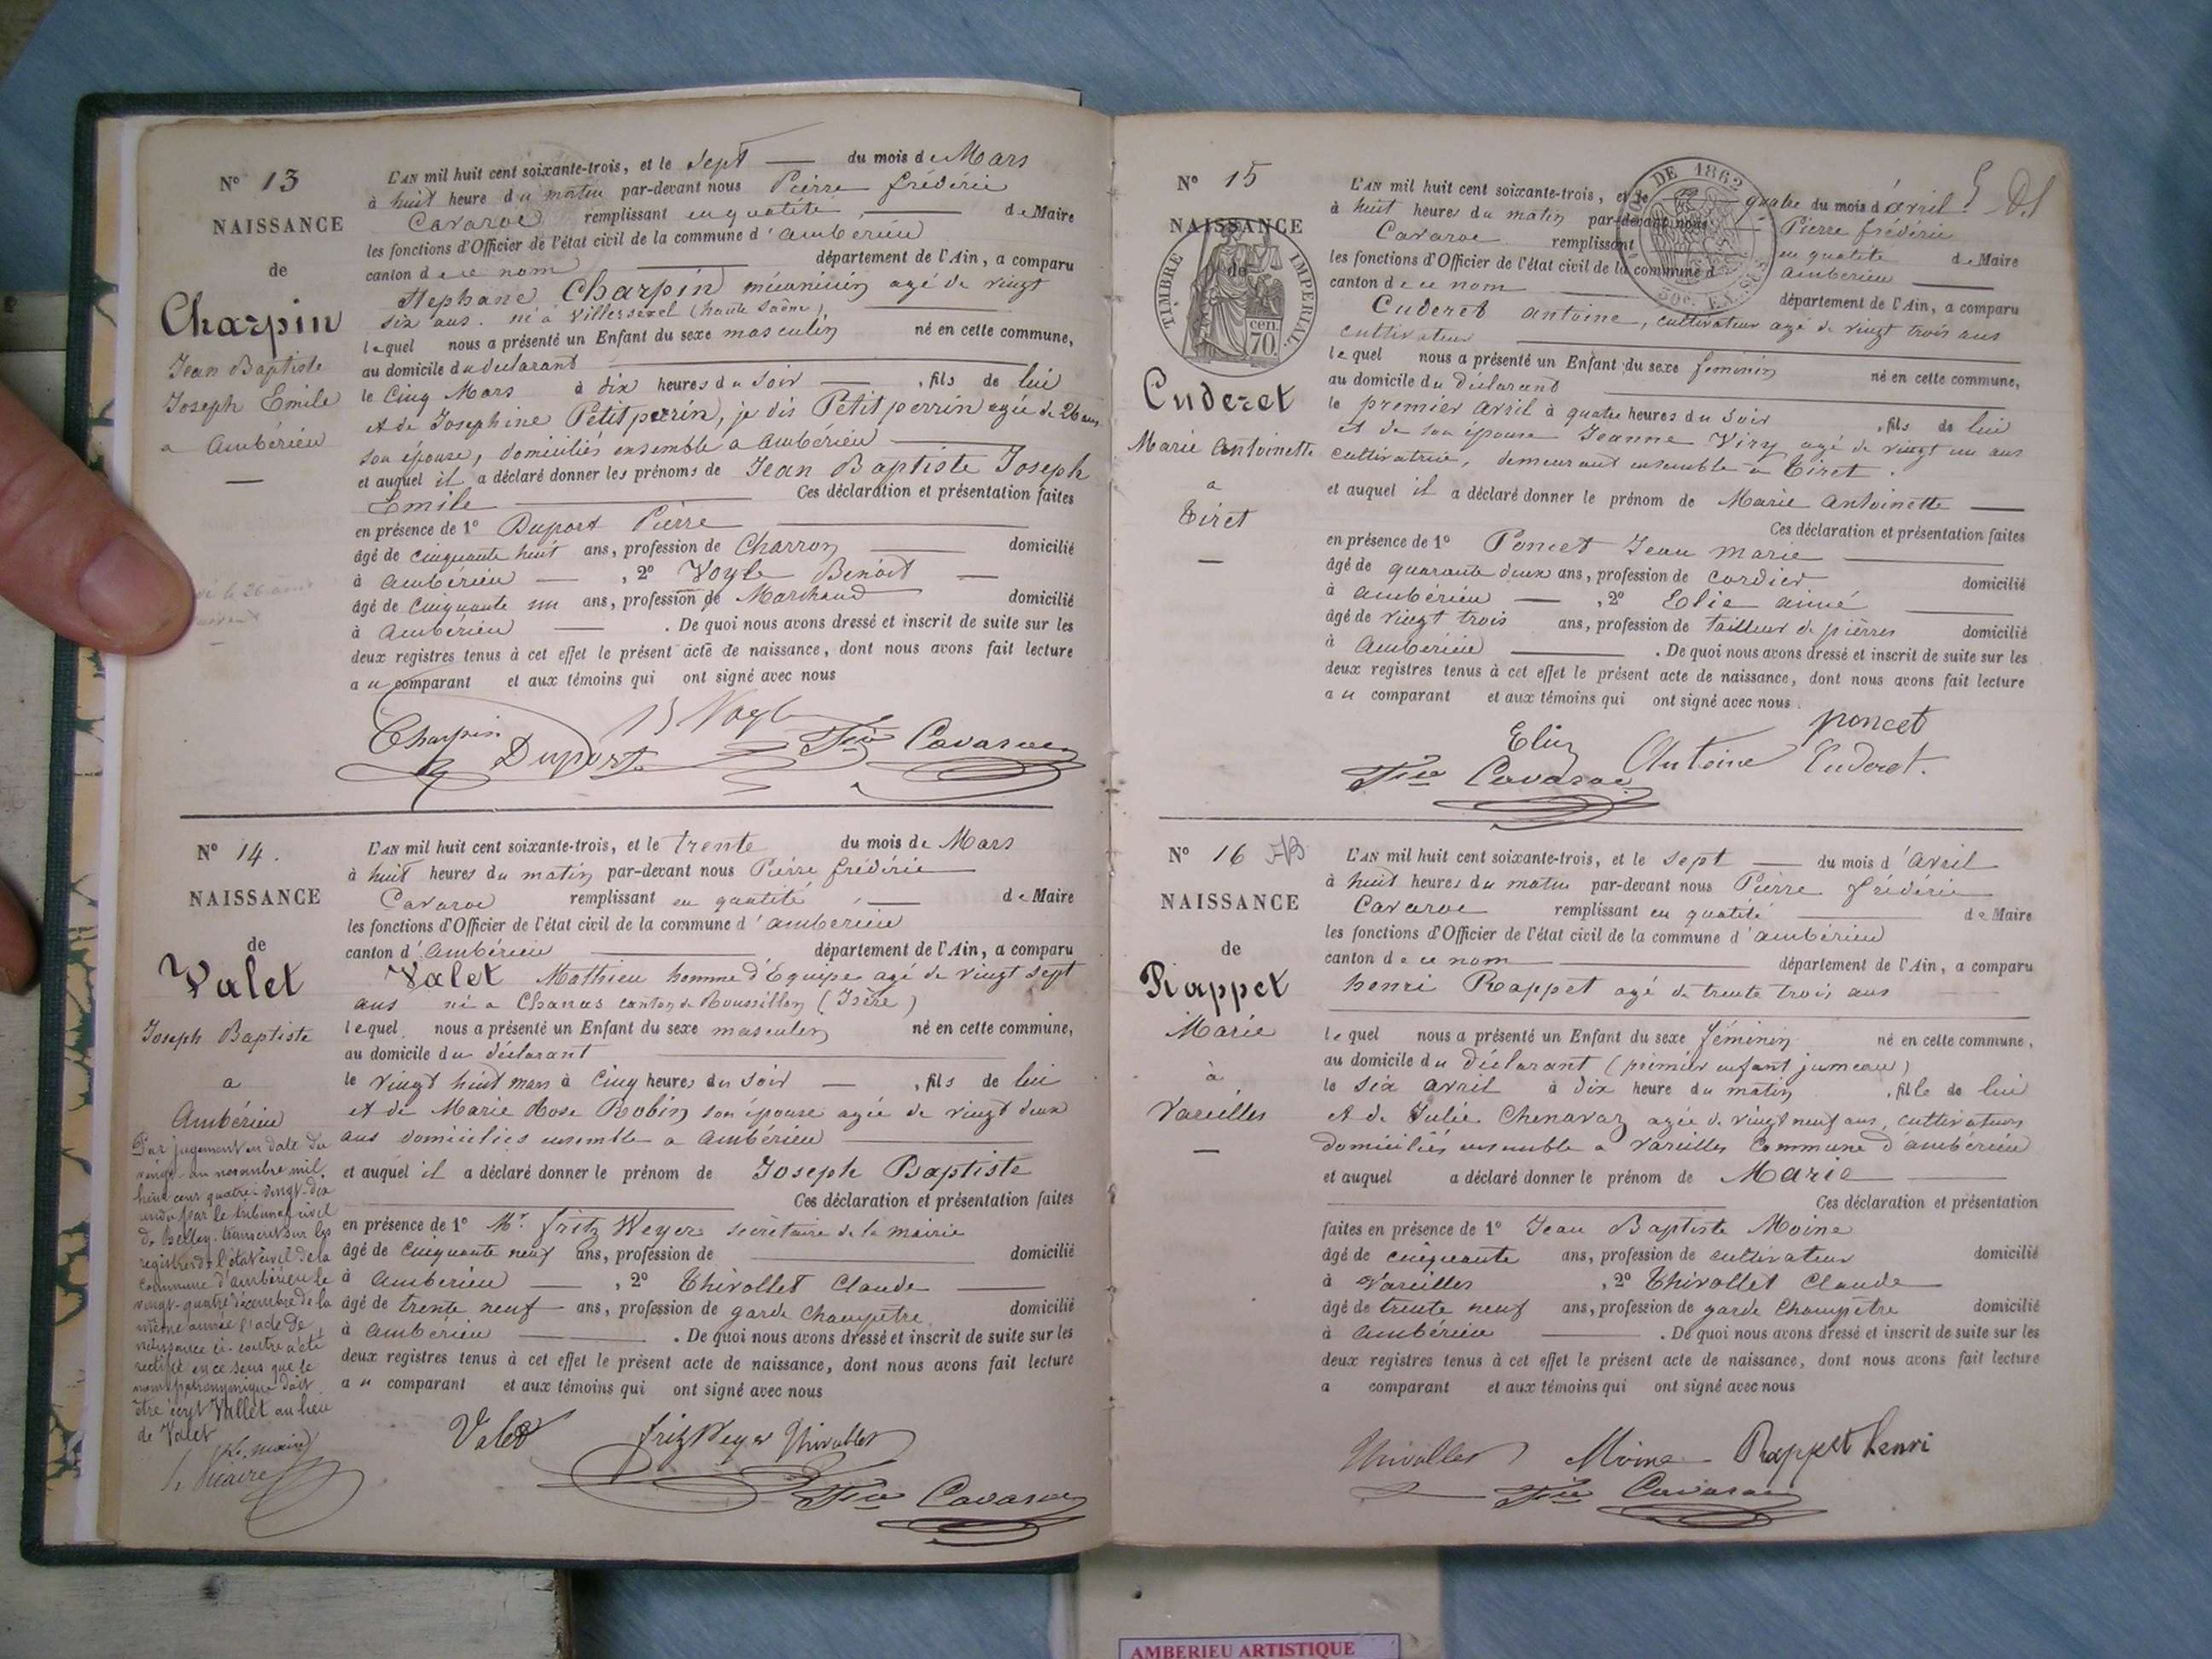 N° 13
NAISSANCE
de
Charpin
Jean Baptiste
Joseph Emile
a Ambérieu
L'AN mil huit cent soixante-trois, et le sept du mois de Mars
à huit heure du matin par-devant nous Pierre frédéric
Cavaroc remplissant en qualité de Maire
les fonctions d'Officier de l'état civil de la commune d'ambérieu
canton de ce nom département de l'Ain, a comparu
Stephane Charpin mécanicien agé de vingt
six ans. né à Villersexel (haute Saône)
lequel nous a présenté un Enfant du sexe masculin né en cette commune,
au domicile du déclarant
le Cinq Mars à dix heures du soir , fils de lui
et de Josephine Petitperrin, je dis Petitperrin agée de 26 ans
son épouse, domiciliés ensemble a ambérieu
et auquel il a déclaré donner les prénoms de Jean Baptiste Joseph
Emile Ces déclaration et présentation faites
en présence de 1° Duport Pierre
âgé de cinquante huit ans, profession de Charron domicilié
à ambérieu , 2° Vogle Benoit
âgé de cinquante un ans, profession de Marchand domicilié
à ambérieu . De quoi nous avons dressé et inscrit de suite sur les
deux registres tenus à cet effet le présent acte de naissance, dont nous avons fait lecture
au comparant et aux témoins qui ont signé avec nous
Charpin Duport B Vogle Fric Cavaroc
N° 14.
NAISSANCE
de
Valet
Joseph Baptiste
a
Ambérieu
Par jugement en date du
vingt-un novembre mil
huit cent quatre-vingt-dix
rendu par le tribunal civil
de Belley, transcrit sur les
registres de l'état civil de la
commune d'ambérieu le
vingt-quatre décembre de la
même année l'acte de
naissance ci-contre a été
rectifié en ce sens que le
nom patronymique doit
être écrit Vallet au lieu
de Valet
Le maire
L'AN mil huit cent soixante-trois, et le trente du mois de Mars
à huit heures du matin par-devant nous Pierre frédéric
Cavaroc remplissant en qualité de Maire
les fonctions d'Officier de l'état civil de la commune d'ambérieu
canton d'ambérieu département de l'Ain, a comparu
Valet Mathieu homme d'Equipe agé de vingt sept
ans né a Chanas canton de Roussillon (Isère)
lequel nous a présenté un Enfant du sexe masculin né en cette commune,
au domicile du déclarant
le vingt huit mars à Cinq heures du soir , fils de lui
et de Marie Rose Robin son épouse agée de vingt deux
ans domiciliés ensemble a ambérieu
et auquel il a déclaré donner le prénom de Joseph Baptiste
Ces déclaration et présentation faites
en présence de 1° Mr. fritz Weyer secrétaire de la mairie
âgé de cinquante neuf ans, profession de domicilié
à ambérieu , 2° Thivollet Claude
âgé de trente neuf ans, profession de garde champêtre domicilié
à ambérieu . De quoi nous avons dressé et inscrit de suite sur les
deux registres tenus à cet effet le présent acte de naissance, dont nous avons fait lecture
au comparant et aux témoins qui ont signé avec nous
Valet fritz Weyer Thivollet
Fric Cavaroc
N° 15
NAISSANCE
de
TIMBRE IMPERIAL.
cen. 70
Cuderet
Marie Antoinette
a
Tiret
DE 1862
L'AN mil huit cent soixante-trois, et le quatre du mois d'avril
à huit heures du matin par-devant nous Pierre frédéric
Cavaroc remplissant en qualité de Maire
les fonctions d'Officier de l'état civil de la commune d ambérieu
canton de ce nom département de l'Ain, a comparu
Cuderet antoine, cultivateur agé de vingt trois ans
cultivateur
lequel nous a présenté un Enfant du sexe feminin né en cette commune,
au domicile du déclarant
le premier avril à quatre heures du soir , fils de lui
et de son épouse Jeanne Viry agé de vingt un ans
cultivatrice, demeurant ensemble a Tiret.
et auquel il a déclaré donner le prénom de Marie antoinette
Ces déclaration et présentation faites
en présence de 1° Poncet Jean marie
âgé de quarante deux ans, profession de cordier domicilié
à ambérieu , 2° Elie aimé
âgé de vingt trois ans, profession de tailleur de pierres domicilié
à Ambérieu . De quoi nous avons dressé et inscrit de suite sur les
deux registres tenus à cet effet le présent acte de naissance, dont nous avons fait lecture
au comparant et aux témoins qui ont signé avec nous.
poncet
Antoine Cuderet.
Fric Cavaroc
N° 16
NAISSANCE
de
Rappet
Marie
à
Vareilles
L'AN mil huit cent soixante-trois, et le sept du mois d'avril
à huit heures du matin par-devant nous Pierre frédéric
Cavaroc remplissant en qualité de Maire
les fonctions d'Officier de l'état civil de la commune d'ambérieu
canton de ce nom département de l'Ain, a comparu
henri Rappet agé de trente trois ans
lequel nous a présenté un Enfant du sexe féminin né en cette commune,
au domicile du déclarant (premier enfant jumeau)
le six avril à dix heure du matin , fille de lui
et de Julie Chenavaz agée de vingt neuf ans, cultivateurs
domiciliés ensemble a Vareilles Commune d'ambérieu
et auquel a déclaré donner le prénom de Marie
Ces déclaration et présentation
faites en présence de 1° Jean Baptiste Moine
âgé de cinquante ans, profession de cultivateur domicilié
à Vareilles , 2° Thivollet Claude
âgé de trente neuf ans, profession de garde champêtre domicilié
à ambérieu . De quoi nous avons dressé et inscrit de suite sur les
deux registres tenus à cet effet le présent acte de naissance, dont nous avons fait lecture
a comparant et aux témoins qui ont signé avec nous
Thivollet Moine Rappet henri
Fric Cavaroc
AMBERIEU ARTISTIQUE